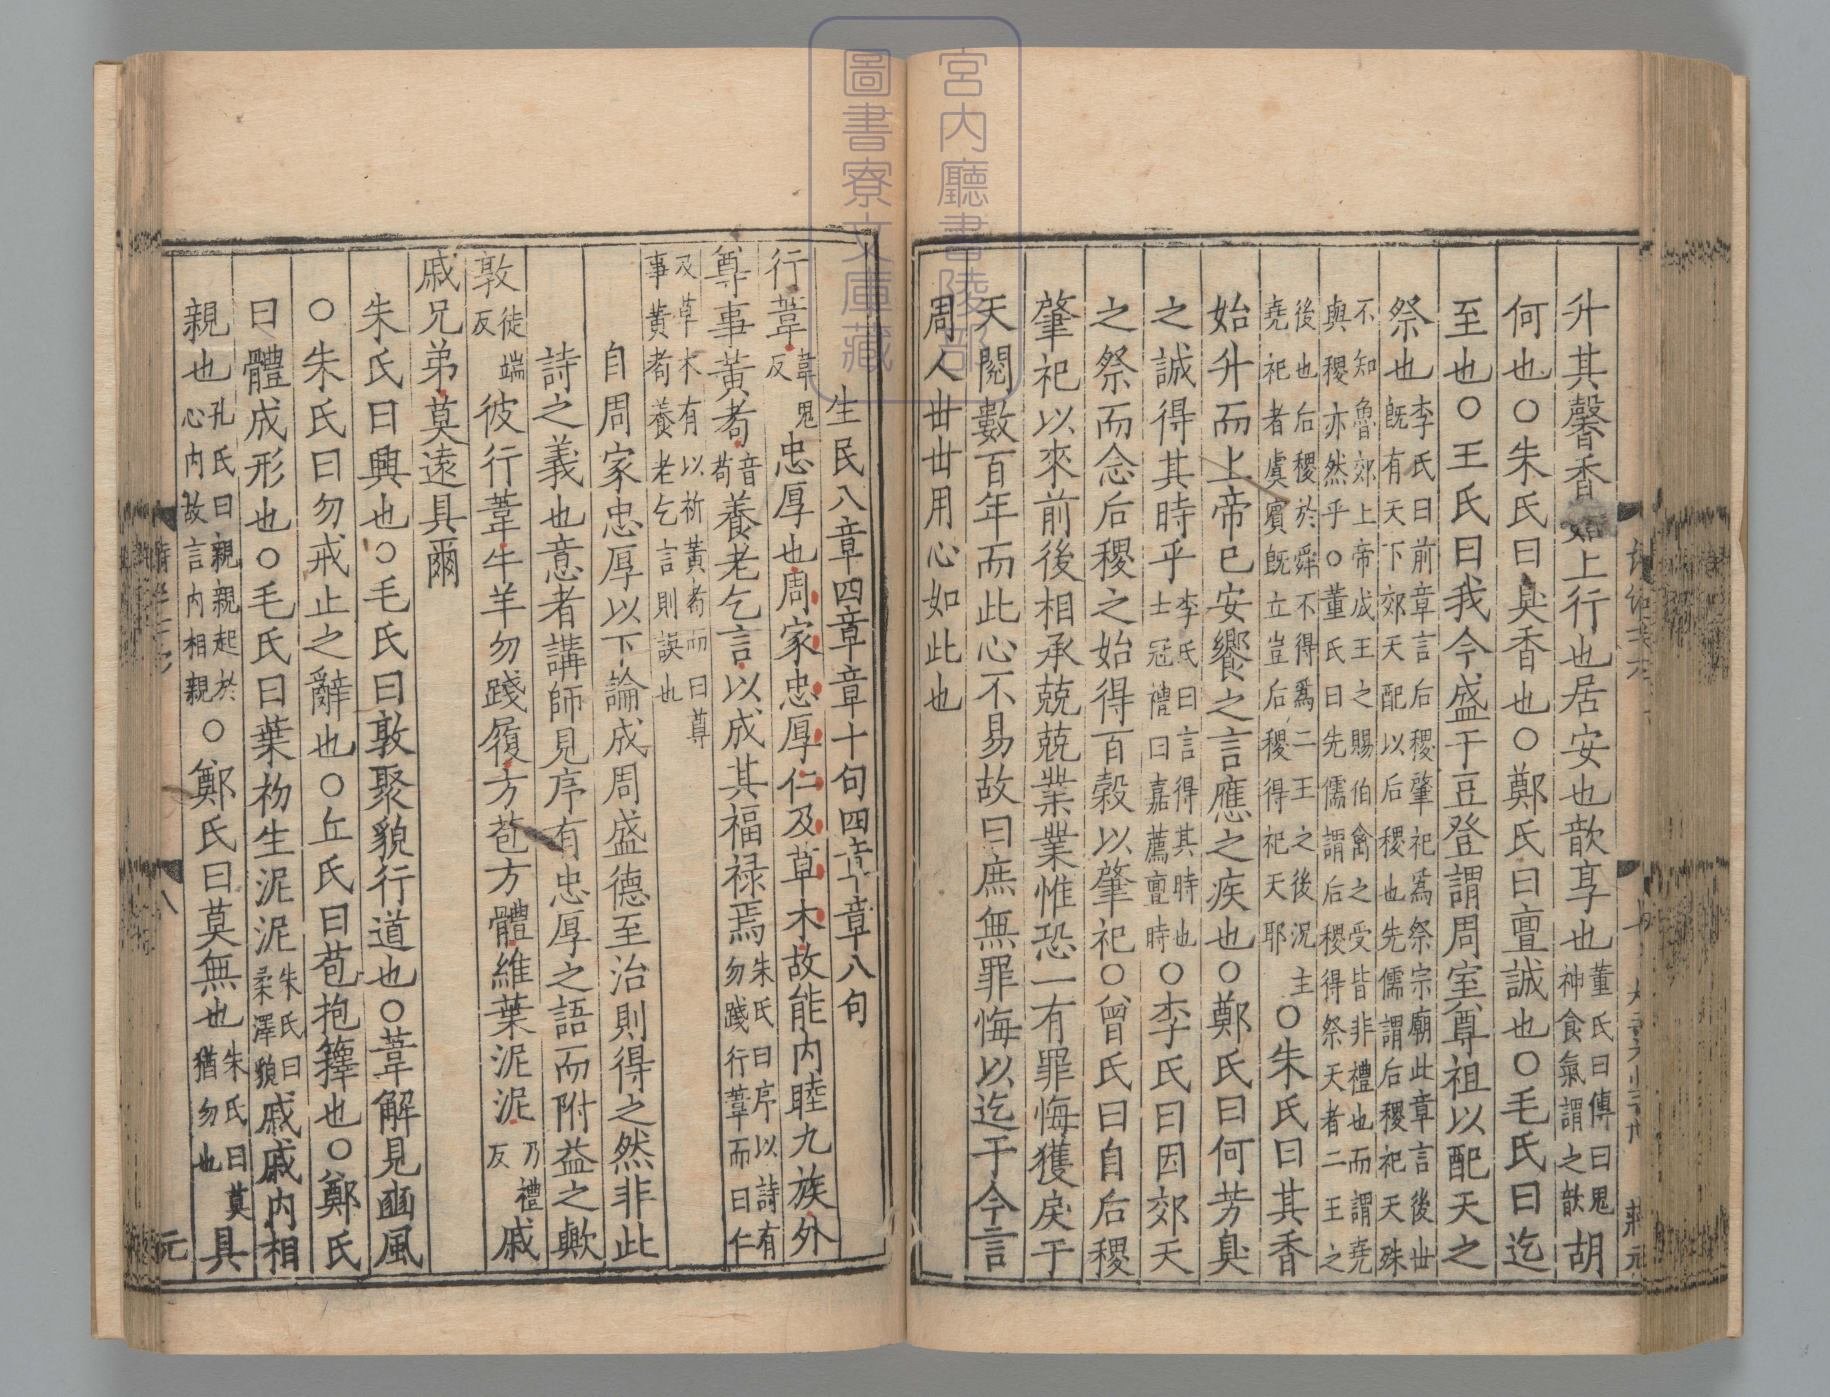 升其馨香始上行也居安也歆享也董氏曰傳曰鬼神食氣謂之歆胡
何也○朱氏曰臭香也○鄭氏曰亶誠也○毛氏曰迄
至也○王氏曰我今盛于豆登謂周室尊祖以配天之
祭也李氏曰前章言后稷肇祀爲祭宗廟此章言後世既有天下郊天配以后稷也先儒謂后稷祀天殊
不知魯郊上帝成王之賜伯禽之受皆非禮也而謂堯與稷亦然乎○董氏曰先儒謂后稷得祭天者二王之
後也后稷於舜不得爲二王之後況堯祀者虞賓既立豈后稷得祀天耶主○朱氏曰其香
始升而上帝已安饗之言應之疾也○鄭氏曰何芳臭
之誠得其時乎李氏曰言得其時也士冠禮曰嘉薦亶時○李氏曰因郊天
之祭而念后稷之始得百穀以肇祀○曾氏曰自后稷
肇祀以來前後相承兢兢業業惟恐一有罪悔獲戾于
天閱數百年而此心不易故曰庶無罪悔以迄于今言
周人世世用心如此也
生民八章四章章十句四章章八句
行葦韋鬼反忠厚也周家忠厚仁及草木故能内睦九族外
尊事黃耇音苟養老乞言以成其福祿焉朱氏曰序以詩有勿踐行葦而曰仁
及草木有以祈黃耇而曰尊事黃耇養老乞言則誤也
自周家忠厚以下論成周盛德至治則得之然非此
詩之義也意者講師見序有忠厚之語而附益之歟
敦徒端反彼行葦牛羊勿踐履方苞方體維葉泥泥乃禮反戚
戚兄弟莫遠具爾
朱氏曰興也○毛氏曰敦聚貌行道也○葦解見豳風
○朱氏曰勿戒止之辭也○丘氏曰苞抱籜也○鄭氏
曰體成形也○毛氏曰葉初生泥泥朱氏曰柔澤貌戚戚内相
親也孔氏曰親親起於心内故言内相親○鄭氏曰莫無也朱氏曰莫猶勿也具